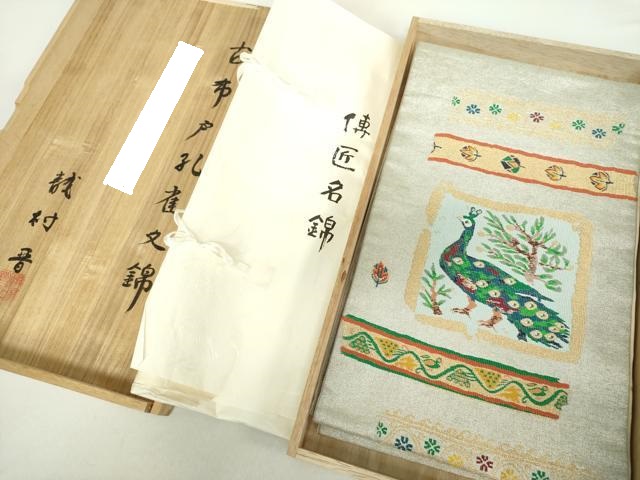 古布戸孔雀文錦
龍村晋
傳匠名錦